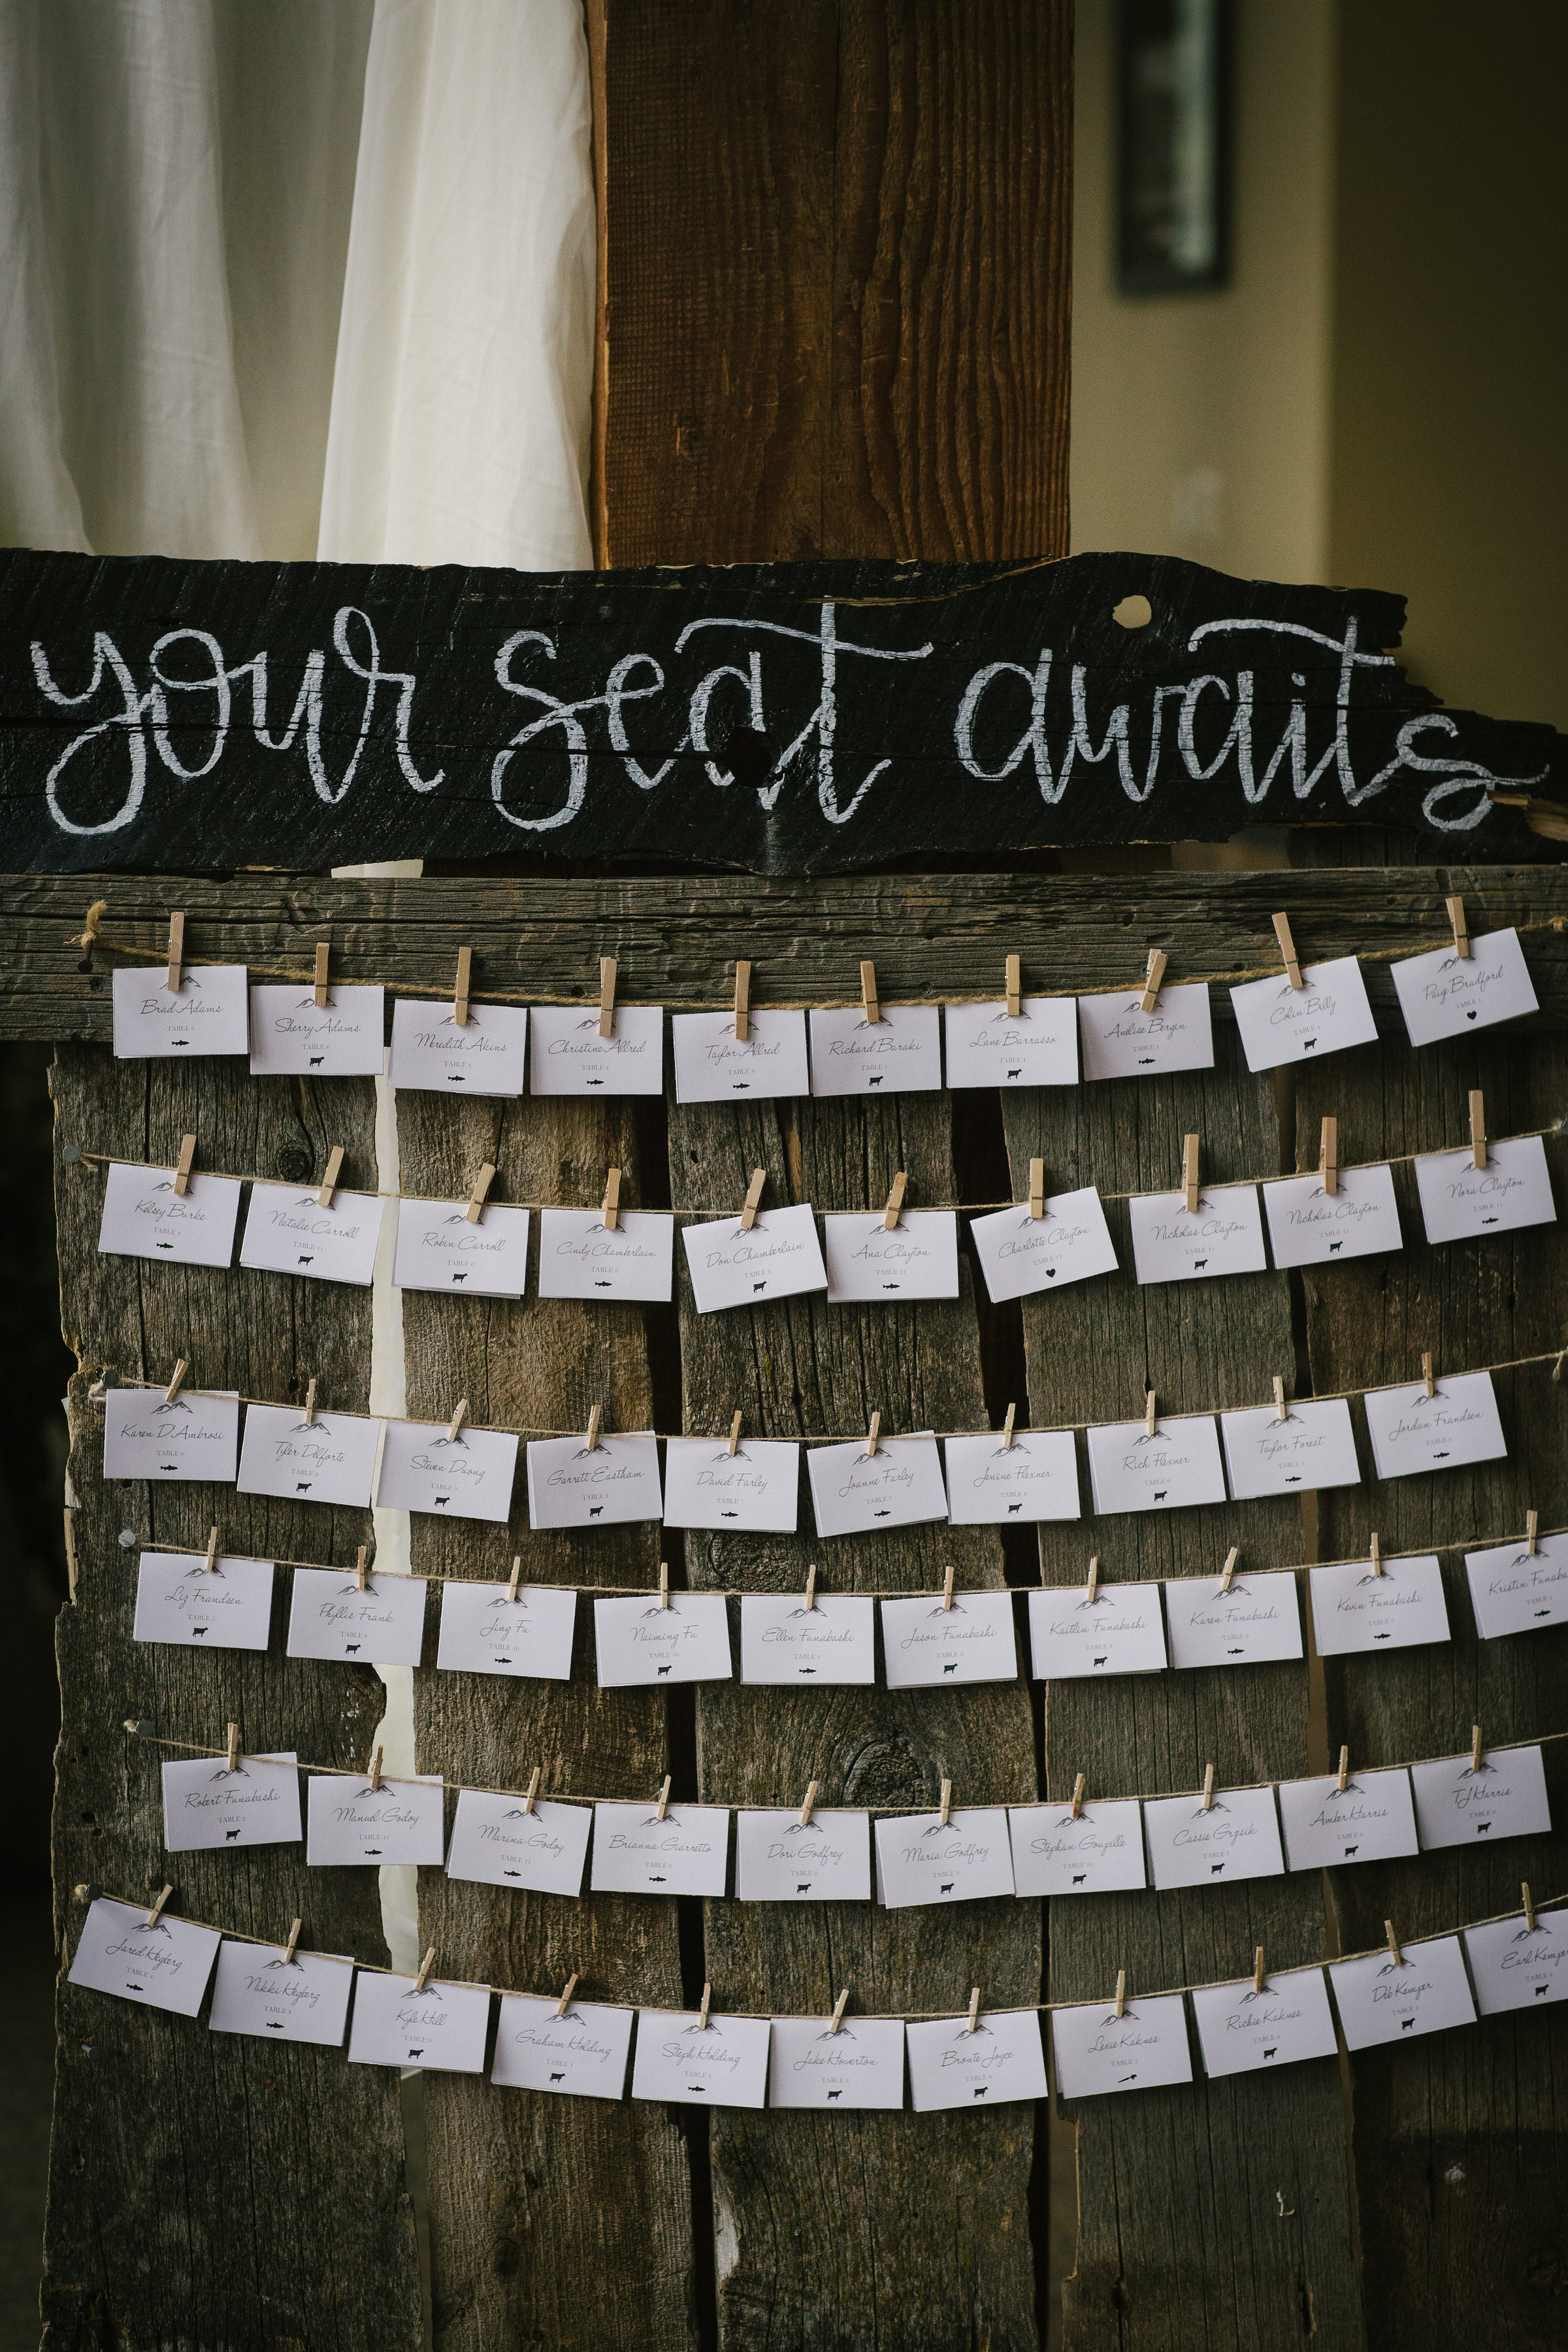 your seat awaits
Brad Adams
TABLE 6
Sherry Adams
TABLE 6
Meredith Akins
TABLE
Christine Allred
TABLE
Taylor Allred
TABLE
Richard Baraki
TABLE
Lane Barrasso
TABLE
Anelise Bergin
TABLE
Colin Billy
TABLE
Paige Bradford
TABLE
Kelsey Burke
TABLE
Natalie Carroll
TABLE
Robin Carroll
TABLE
Cindy Chamberlain
TABLE
Don Chamberlain
TABLE
Ana Clayton
TABLE 11
Charlotte Clayton
TABLE 11
Nicholas Clayton
TABLE 11
Nicholas Clayton
TABLE 11
Nora Clayton
TABLE 11
Karen D'Ambrosi
TABLE
Tyler Delforte
TABLE
Steven Duong
TABLE
Garrett Eastham
TABLE
David Farley
TABLE 7
Joanne Farley
TABLE 7
Jenine Flexner
TABLE
Rich Flexner
TABLE
Taylor Forest
TABLE
Jordan Frandsen
TABLE
Liz Frandsen
TABLE
Phyllis Frank
TABLE
Jing Fu
TABLE 10
Naiming Fu
TABLE 10
Ellen Funabashi
TABLE
Jason Funabashi
TABLE
Kaitlin Funabashi
TABLE
Karen Funabashi
TABLE
Kevin Funabashi
TABLE
Kristin Funaba
TABLE
Robert Funabashi
TABLE
Manuel Godoy
TABLE 11
Marina Godoy
TABLE 11
Brianna Giarretto
TABLE
Dori Godfrey
TABLE
Maria Godfrey
TABLE
Stephan Goupille
TABLE 10
Cassie Grysik
TABLE
Amber Harris
TABLE
TJ Harris
TABLE
Jared Heglerg
TABLE
Nikki Heglerg
TABLE
Kyle Hill
TABLE
Graham Holding
TABLE
Steph Holding
TABLE
Jake Howerton
TABLE
Bronte Joyce
TABLE
Lexie Kaknes
TABLE
Richie Kaknes
TABLE
Deb Kemper
TABLE
Earl Kempe
TABLE